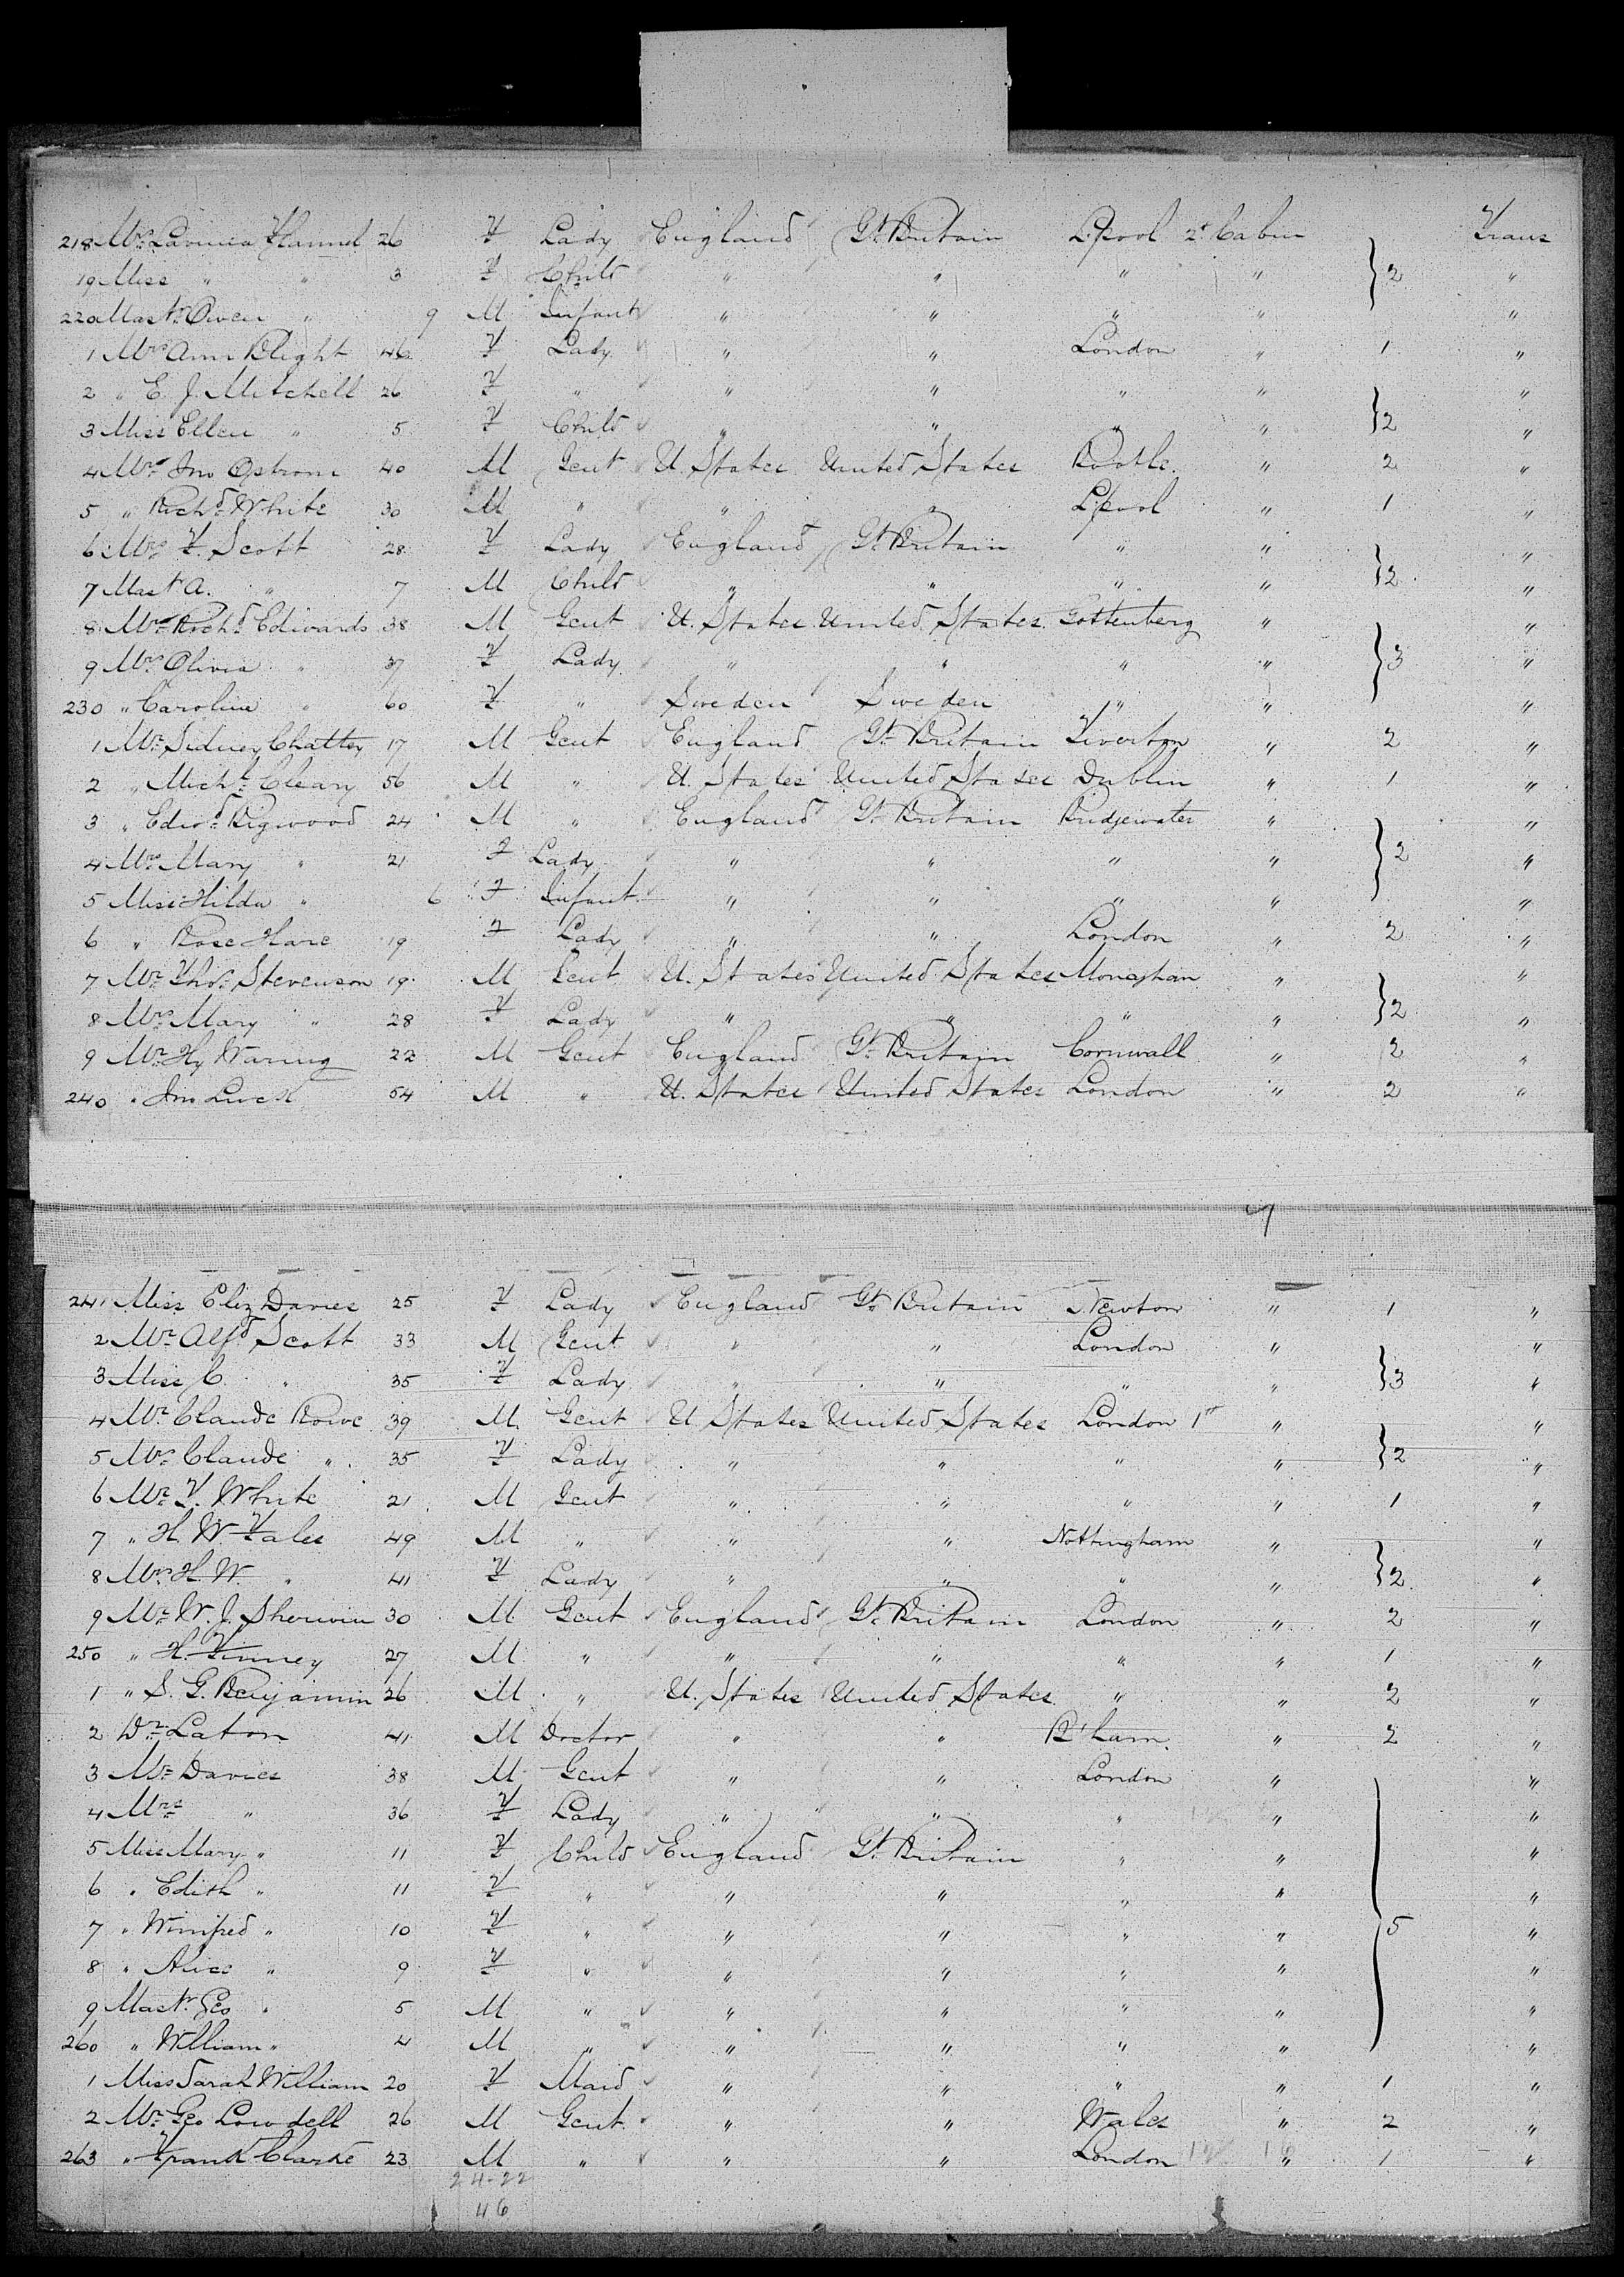 218 Mrs Lavinia Flannel 26 F Lady England Gt. Britain L.pool 2d Cabin Trans
19 Miss " " 3 F Child " " " " } 2 "
220 Mastr Owen " 9 M Infant " " " " "
1 Mrs Ann Blight 46 F Lady " " London " 1 "
2 " E. J. Mitchell 26 F " " " " " "
3 Miss Ellen " 5 F Child " " " " } 2 "
4 Mr Jno Opstrom 40 M Gent U. States United States Bootle " 2 "
5 " Richd White 30 M " " " L.pool " 1 "
6 Mrs F. Scott 28 F Lady England Gt. Britain " " "
7 Mast A. " 7 M Child " " " " } 2 "
8 Mr Richd Edwards 38 M Gent U. States United States Gottenberg " "
9 Mrs Olivia " 37 F Lady " " " " } 3 "
230 " Caroline " 60 F " Sweden Sweden " " "
1 Mr Sidney Chattey 17 M Gent England Gt. Britain Tiverton " 2 "
2 " Michl Cleary 56 M " U. States United States Dublin " 1 "
3 " Edwd Bigwood 24 M " England Gt. Britain Bridjewater " "
4 Mrs Mary " 21 F Lady " " " " } 2 "
5 Miss Hilda " 6 F Infant " " " " "
6 " Rose Hare 19 F Lady " " London " 2 "
7 Mr Thos Stevenson 19 M Gent U. States United States Monaghan " "
8 Mrs Mary " 28 F Lady " " " " } 2 "
9 Mr Hy Waring 22 M Gent England Gt. Britain Cornwall " 2 "
240 " Jno Luck 54 M " U. States United States London " 2 "
241 Miss Eliz Davies 25 F Lady England Gt. Britain Newton " 1 "
2 Mr Alfd Scott 33 M Gent " " London " "
3 Miss C. " 35 F Lady " " " " } 3 "
4 Mr Claude Rowe 39 M Gent U States United States London 1st " "
5 Mrs Claude " 35 F Lady " " " " } 2 "
6 Mr F. White 21 M Gent " " " " 1 "
7 " H. W. Fales 49 M " " " Nottingham " "
8 Mrs H. W. " 41 F Lady " " " " } 2 "
9 Mr W. J. Sherwin 30 M Gent England Gt. Britain London " 2 "
250 " H. Finney 27 M " " " " " 1 "
1 " S. G. Benjamin 26 M " U. States United States " " 2 "
2 Dr Laton 41 M Doctor " " B'ham " 2 "
3 Mr Davies 38 M Gent " " London " "
4 Mrs " 36 F Lady " " " " "
5 Miss Mary " 11 F Child England Gt. Britain " " "
6 " Edith " 11 F " " " " " "
7 " Winifred " 10 F " " " " " } 5 "
8 " Alice " 9 F " " " " " "
9 Mastr Geo " 5 M " " " " " "
260 " William " 4 M " " " " " "
1 Miss Sarah William 20 F Maid " " " " 1 "
2 Mr Geo Lowdell 26 M Gent " " Wales " 2 "
263 " Frank Clarke 23 M " " " London " 1 "
24-22
46